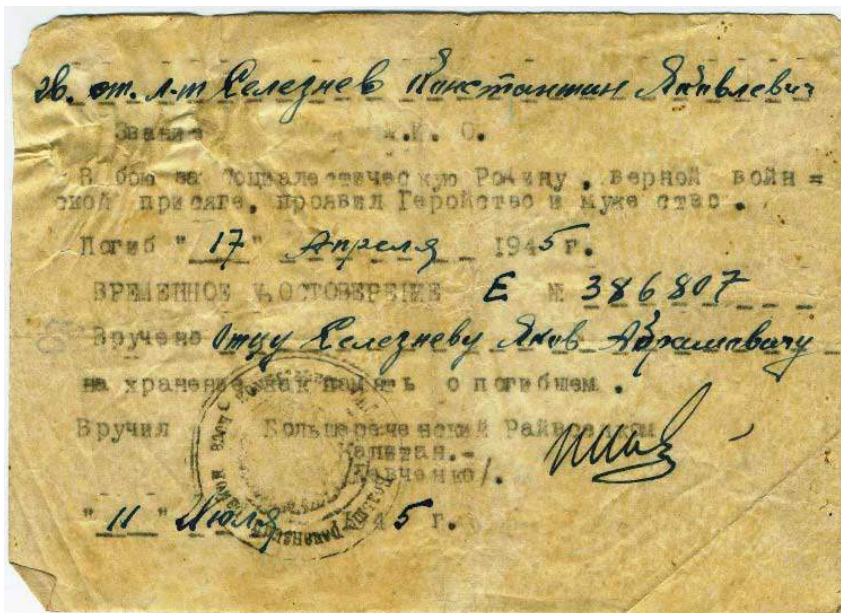 гв. ст. л-т Селезнев Константин Яковлевич
Звание
В бою за Социалестическую Родину, верной войн=
ской присяге, проявил Геройство и муже ство.
Погиб "17" Апреля 1945 г.
ВРЕМЕННОЕ УДОСТОВЕРЕНИЕ Е № 386807
Вручено Отцу Селезневу Яков Абрамовичу
на хранение как память о погибшем.
Вручил Большереченский Райвоенком
Капитан.-
/Шевченко/.
"11" Июля 1945 г.